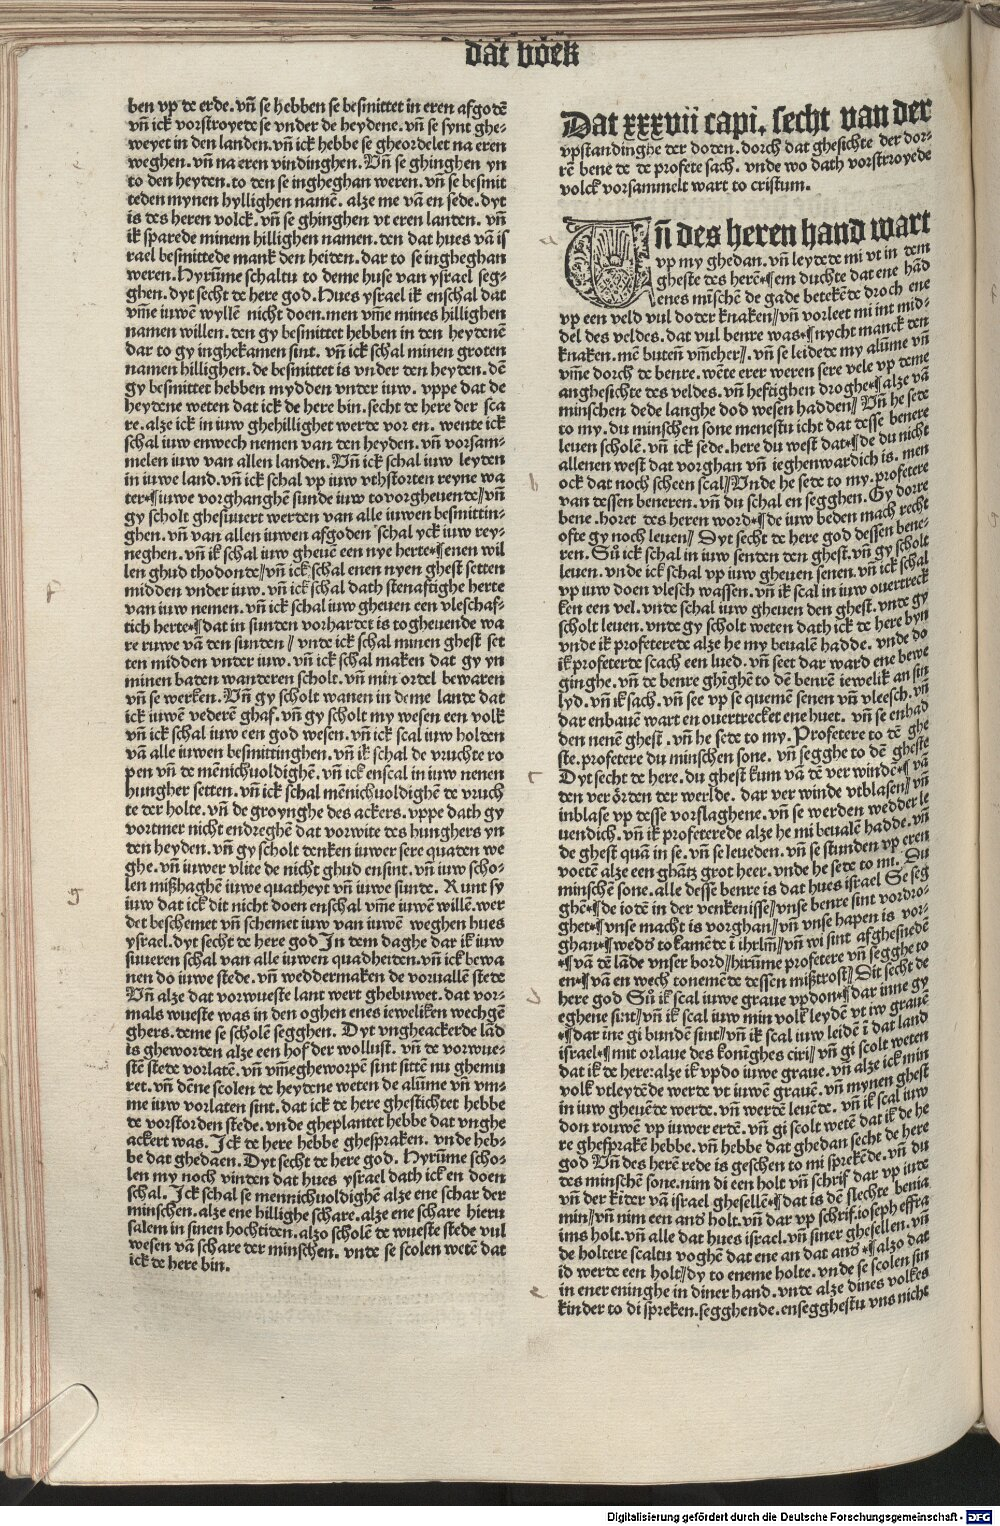 dat boek
ben vp de erde. vñ se hebben se besmittet in eren afgodē
vñ ick vorstroyede se vnder de heydene. vñ se synt ghe-
weyet in den landen. vñ ick hebbe se gheordelet na eren
weghen. vñ na eren vindinghen. Vñ se ghinghen yn
to den heyden. to den se ingheghan weren. vñ se besmit
teden mynen hyllighen namē. alze me vā en sede. dyt
is des heren volck. vñ se ghinghen vt eren landen. vñ
ik sparede minem hillighen namen. den dat hues vā is
rael besmittede mank den heiden. dar to se ingheghan
weren. Hyrūme schaltu to deme huse van ysrael seg-
ghen. dyt secht de here god. Hues ysrael ik enschal dat
vm̄e iuwē wyllē nicht doen. men vm̄e mines hillighen
namen willen. den gy besmittet hebben in den heydenē
dar to gy inghekamen sint. vñ ick schal minen groten
namen hillighen. de besmittet is vnder den heyden. dē
gy besmittet hebben mydden vnder iuw. vppe dat de
heydene weten dat ick de here bin. secht de here der sca
re. alze ick in iuw ghehillighet werde vor en. wente ick
schal iuw enwech nemen van den heyden. vñ vorsam-
melen iuw van allen landen. Vñ ick schal iuw leyden
in iuwe land. vñ ick schal vp iuw vthstorten reyne wa
ter¶iuwe vorghanghē sunde iuw to vorgheuende//vñ
gy scholt ghesiuuert werden van alle iuwen besmittin-
ghen. vñ van allen iuwen afgoden schal yck iuw rey-
neghen. vñ ik schal iuw gheuē een nye herte¶enen wil
len ghud thodonde//vñ ick schal enen nyen ghest setten
midden vnder iuw. vñ ick schal dath stenaftighe herte
van iuw nemen. vñ ick schal iuw gheuen een vleschaf-
tich herte¶dat in sunden vorhardet is to gheuende wa
re ruwe vā den sunden// vnde ick schal minen ghest set
ten midden vnder iuw. vñ ick schal maken dat gy yn
minen baden wanderen scholt. vñ min ordel bewaren
vñ se werken. Vñ gy scholt wanen in deme lande dat
ick iuwē vederē ghaf. vñ gy scholt my wesen een volk
vñ ick schal iuw een god wesen. vñ ick scal iuw holden
vā alle iuwen besmittinghen. vñ ik schal de vruchte ro
pen vñ de mēnichuoldighē. vñ ick enscal in iuw nenen
hungher setten. vñ ick schal mēnichuoldighē de vruch
te der holte. vñ de groynghe des ackers. vppe dath gy
vortmer nicht endreghē dat vorwite des hunghers yn
den heyden. vñ gy scholt denken iuwer sere quaden we
ghe. vñ iuwer vlite de nicht ghud ensint. vñ iuw scho-
len mißhaghē iuwe quatheyt vñ iuwe sunde. Kunt sy
iuw dat ick dit nicht doen enschal vm̄e iuwē willē. wer
det beschemet vñ schemet iuw van iuwē weghen hues
ysrael. dyt secht de here god In dem daghe dar ik iuw
suueren schal van alle iuwen quadheiden. vñ ick bewa
nen do iuwe stede. vñ weddermaken de voruallē stede
Vñ alze dat vorwueste lant wert ghebuwet. dat vor-
mals wueste was in den oghen enes ieweliken wechgē
ghers. deme se scholē segghen. Dyt vngheackerde lād
is gheworden alze een hof der wollust. vñ de vorwue-
stē stede vorlatē. vñ vm̄egheworpē sint sittē nu ghemu
ret. vñ dēne scolen de heydene weten de alūme vñ vm-
me iuw vorlaten sint. dat ick de here ghestichtet hebbe
de vorstorden stede. vnde gheplantet hebbe dat vnghe
ackert was. Ick de here hebbe ghespraken. vnde heb-
be dat ghedaen. Dyt secht de here god. Hyrūme scho-
len my noch vinden dat hues ysrael dath ick en doen
schal. Ick schal se mennichuoldighē alze ene schar der
minschen. alze ene hillighe schare. alze ene schare hieru
salem in sinen hochtiden. alzo scholē de wueste stede vul
wesen vā schare der minschen. vnde se scolen wetē dat
ick de here bin.
Dat xxxvii capi. secht van der
vpstandinghe der doden. dorch dat ghesichte der dor-
rē bene de de profete sach. vnde wo dath vorstrroyede
volck vorsammelt wart to cristum.
Vñ des heren hand wart
vp my ghedan. vñ leydede mi vt in dem
gheste des herē¶em duchte dat ene hād
enes mīschē de gade betekēde droch ene
vp een veld vul doder knaken//vñ vorleet mi int mid-
del des veldes. dat vul benre was¶nycht manck den
knaken. mē butenñ vm̄eher//. vñ se leidede my alūme vñ
vm̄e dorch de benre. wēte erer weren sere vele vp deme
anghesichte des veldes. vñ heftighen droghe¶alze vā
minschen dede langhe dod wesen hadden// Vñ he sede
to my. du minschen sone menestu icht dat desse benere
leuen scholē. vñ ick sede. here du west dat¶de du nicht
allenen west dat vorghan vñ ieghenwardich is. men
ock dat noch scheen scal//Vnde he sede to my. profetere
van dessen beneren. vñ du schal en segghen. Gy dorre
bene. horet des heren word¶de iuw beden mach recht
ofte gy noch leuen// Dyt secht de here god dessen bene-
ren. Sů ick schal in iuw senden den ghest. vñ gy scholt
leuen. vnde ick schal vp iuw gheuen senen. vñ ick schal
vp iuw doen vlesch wassen. vñ ik scal in iuw ouertreck
ken een vel. vnde schal iuw gheuen den ghest. vnde gy
scholt leuen. vnde gy scholt weten dath ick de here byn
vnde ik profeterede alze he my beualē hadde. vnde do
ik profeterde scach een lued. vñ seet dar ward ene bewe
ginghe. vñ de benre ghīghē to dē benrē iewelik an sin
lyd. vñ ik sach. vñ see vp se quemē senen vñ vleesch. vñ
dar enbauē wart en ouertrecket ene huet. vñ se enhad
den nenē ghest. vñ he sede to my. Profetere to dē ghe
ste. profetere du minschen sone. vñ segghe to dē gheste
Dyt secht de here. du ghest kum vā dē ver windē¶ vā
den ver ôrden der werlde. dar ver winde vtblasen// vñ
inblase vp desse vorslaghene. vñ se werden wedder le
uendich. vñ ik profeterede alze he mi beualē hadde. vñ
de ghest quā in se. vñ se leueden. vñ se stunden vp eren
voetē alze een ghātz grot heer. vnde he sede to mi. Du
minschē sone. alle desse benre is dat hues israel Se seg
ghē¶de iodē in der venkenisse//vnse benre sint vordro-
ghet¶vnse macht is vorghan//vñ vnse hapen is vor-
ghan¶wedd to kamēde ī ihrlm̄//vñ wi sint afghesnedē
¶vā dē lāde vnser bord//hirūme profetere vñ segghe to
en¶vā en wech tonemēde dessen mißtrost// Dit secht de
here god Sů ik scal iuwe graue vpdon¶dar inne gy
eghene sint//vñ ik scal iuw min volk leydē vt iw grauē
¶dar īne gi bundē sint//vñ ik scal iuw leidē ī dat land
israel¶mit orlaue des konīghes ciri// vñ gi scolt weten
dat ik de here: alze ik vpdo iuwe graue. vñ alze ick min
volk vtleydēde werde vt iuwē grauē. vñ mynen ghest
in iuw gheuēde werde. vñ werdē leuēde. vñ ik scal iuw
don rouwē vp iuwer erdē. vñ gi scolt wetē dat ik de he
re ghesprakē hebbe. vñ hebbe dat ghedan secht de here
god Vñ des herē rede is geschen to mi sprekēde. vñ du
des minschē sone. nim di een holt vñ schrif dar vp iude
vñ der kīder vā israel ghesellē¶dat is dē slechte benia
min//vñ nim een and holt. vñ dar vp schrif. ioseph effra
ims holt. vñ alle dat hues israel. vñ siner ghesellen. vñ
de holtere scaltu voghē dat ene an dat and ¶alzo dat
id werde een holt//dy to eneme holte. vnde se scolen sin
in ener eninghe in diner hand. vnde alze dines volkes
kinder to di spreken. segghende. ensegghestu vns nicht
a
b
c
d
e
f
g
Digitalisierung gefördert durch die Deutsche Forschungsgemeinschaft - DFG